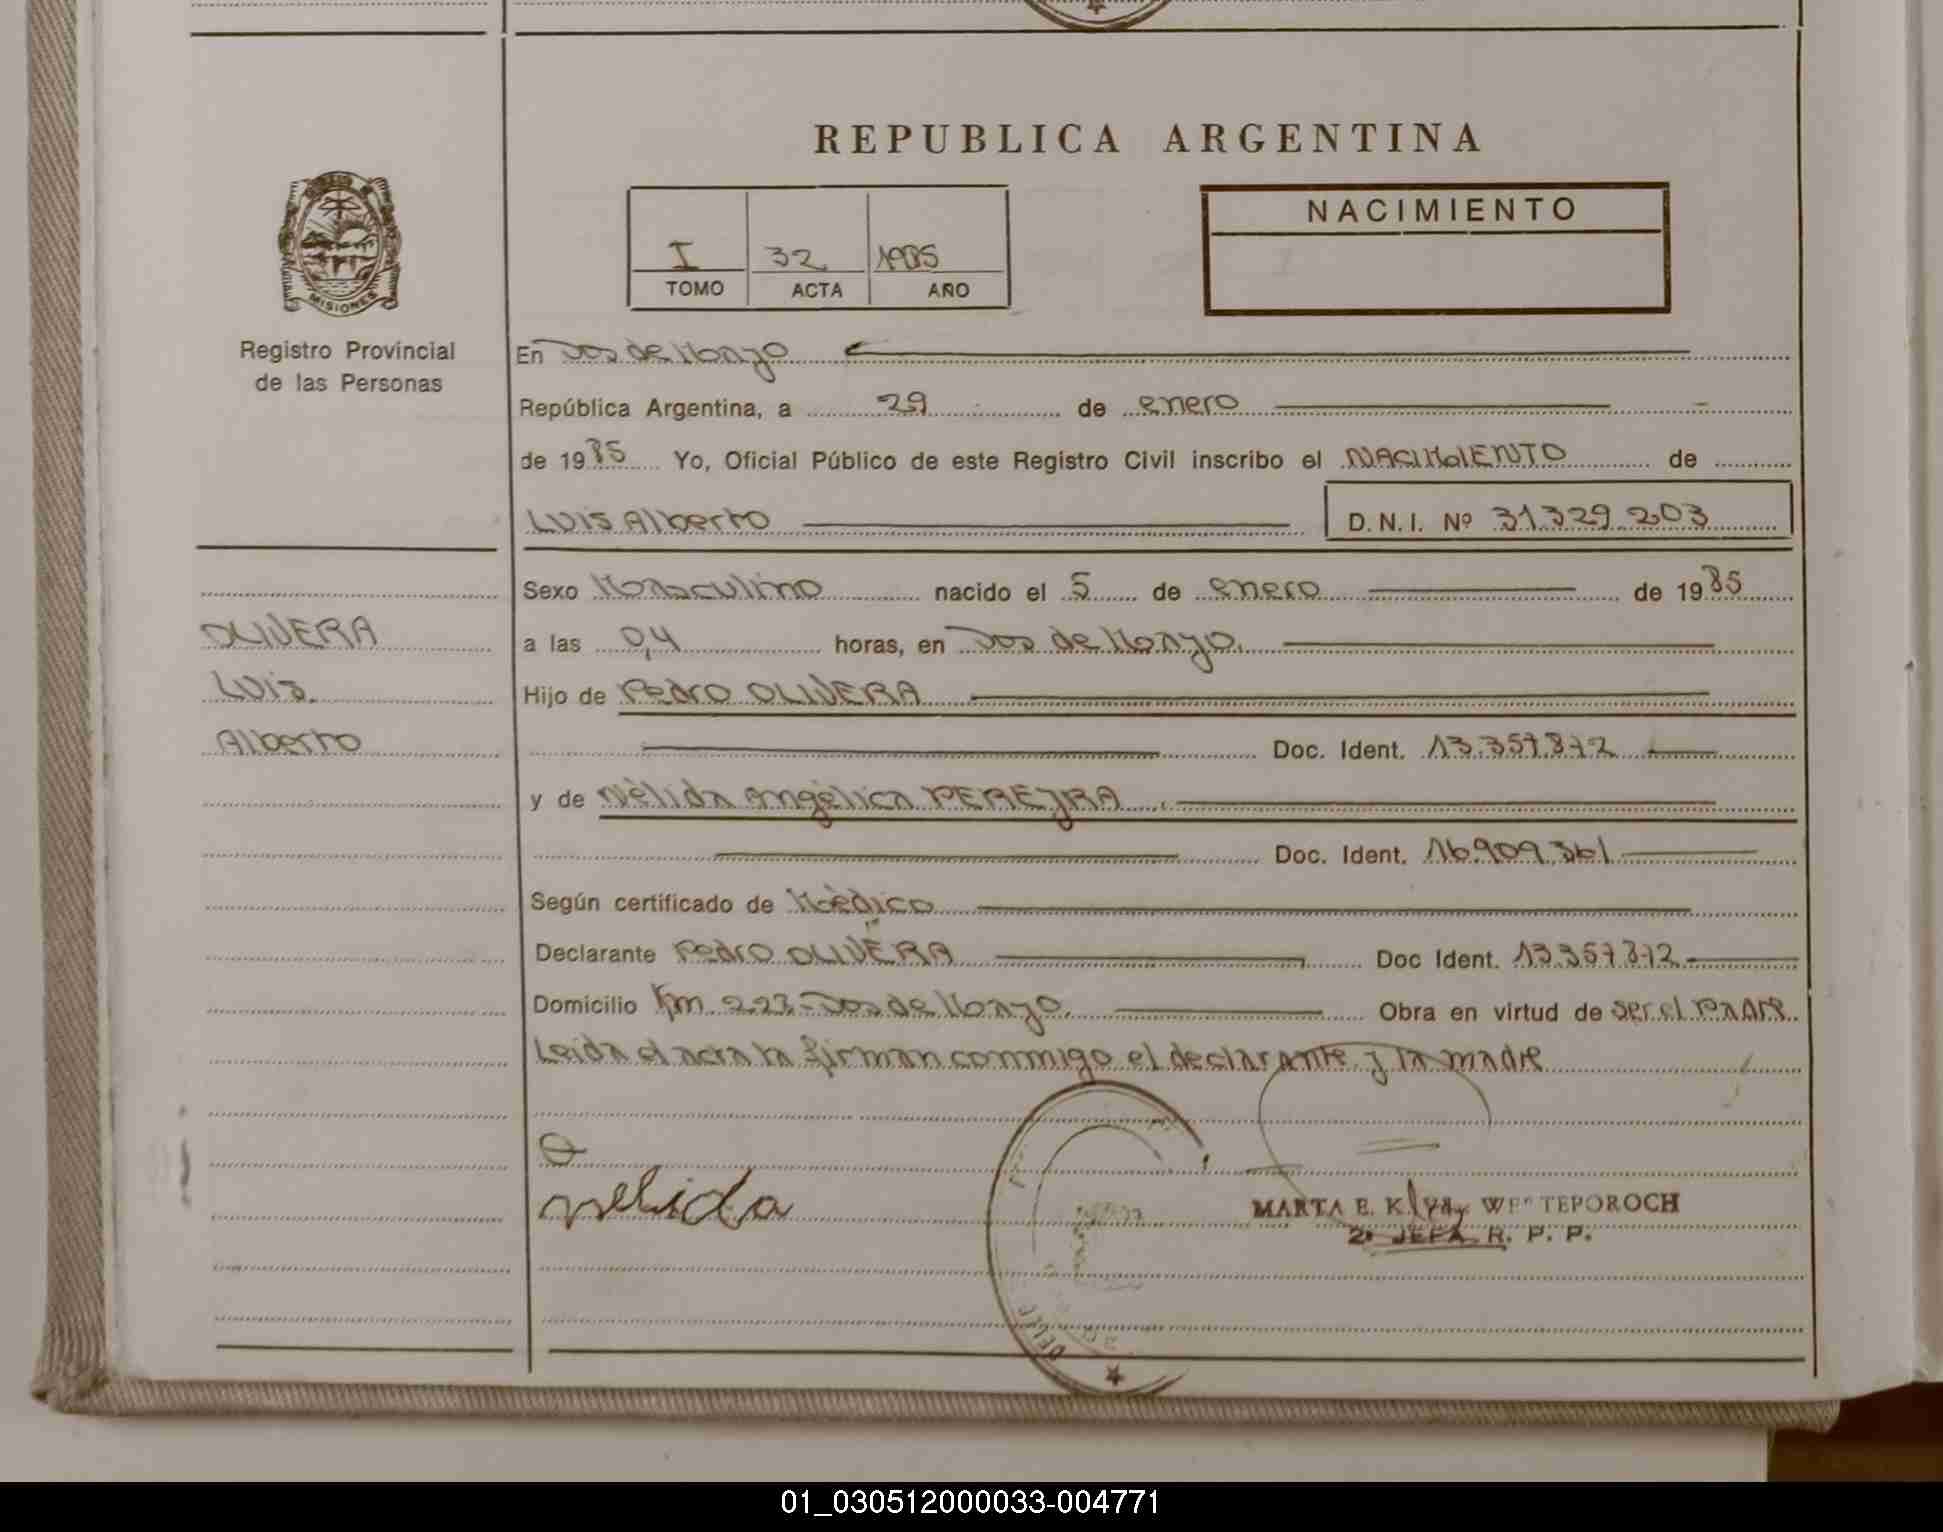 REPUBLICA ARGENTINA
MISIONES
Registro Provincial
de las Personas
I 32 1985
TOMO ACTA AÑO
NACIMIENTO
En Dos de Mayo
República Argentina, a 29 de enero
de 1985 Yo, Oficial Público de este Registro Civil inscribo el NACIMIENTO de
Luis Alberto D.N.I. Nº 31.329.203
OLIVERA
Luis
Alberto
Sexo Masculino nacido el 5 de enero de 1985
a las 0,4 horas, en Dos de Mayo.
Hijo de Pedro OLIVERA
Doc. Ident. 13.357.872
y de Nélida Angélica PEREYRA
Doc. Ident. 16.909.361
Según certificado de Médico
Declarante Pedro OLIVERA Doc Ident. 13.357.872
Domicilio Km 223-Dos de Mayo. Obra en virtud de ser el padre
Leida el acta la firman conmigo el declarante y la madre
nelida
MARTA E. K
TEPOROCH
2º JEFA R. P. P.
01_030512000033-004771